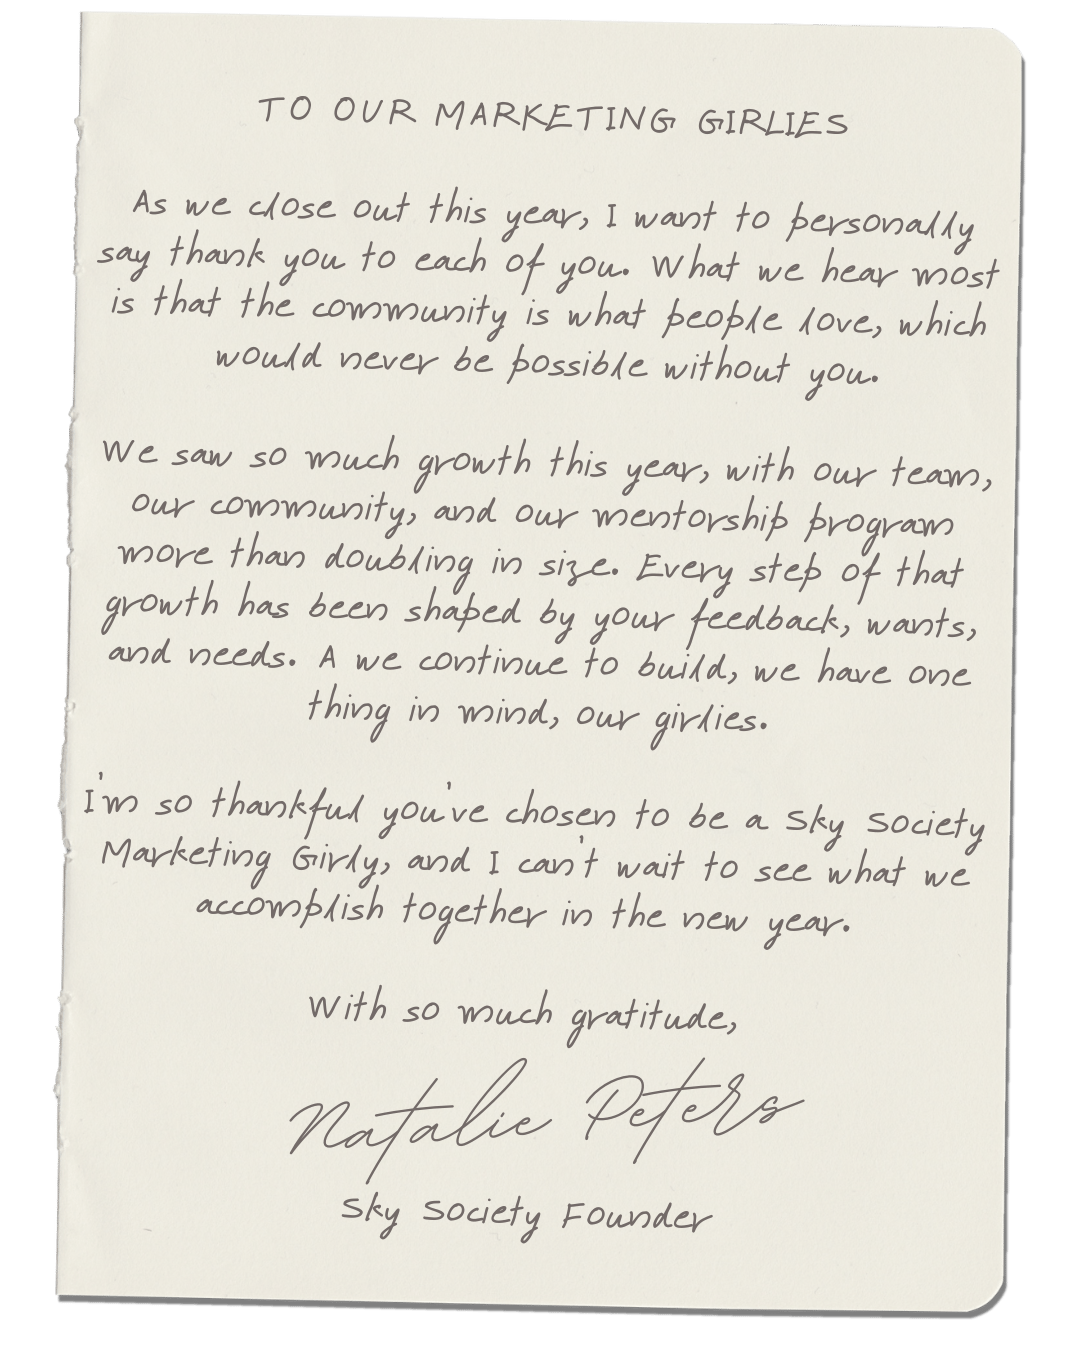 TO OUR MARKETING GIRLIES
As we close out this year, I want to personally
say thank you to each of you. What we hear most
is that the community is what people love, which
would never be possible without you.
We saw so much growth this year, with our team,
our community, and our mentorship program
more than doubling in size. Every step of that
growth has been shaped by your feedback, wants,
and needs. A we continue to build, we have one
thing in mind, our girlies.
I'm so thankful you've chosen to be a Sky Society
Marketing Girly, and I can't wait to see what we
accomplish together in the new year.
With so much gratitude,
Natalie Peters
Sky Society Founder